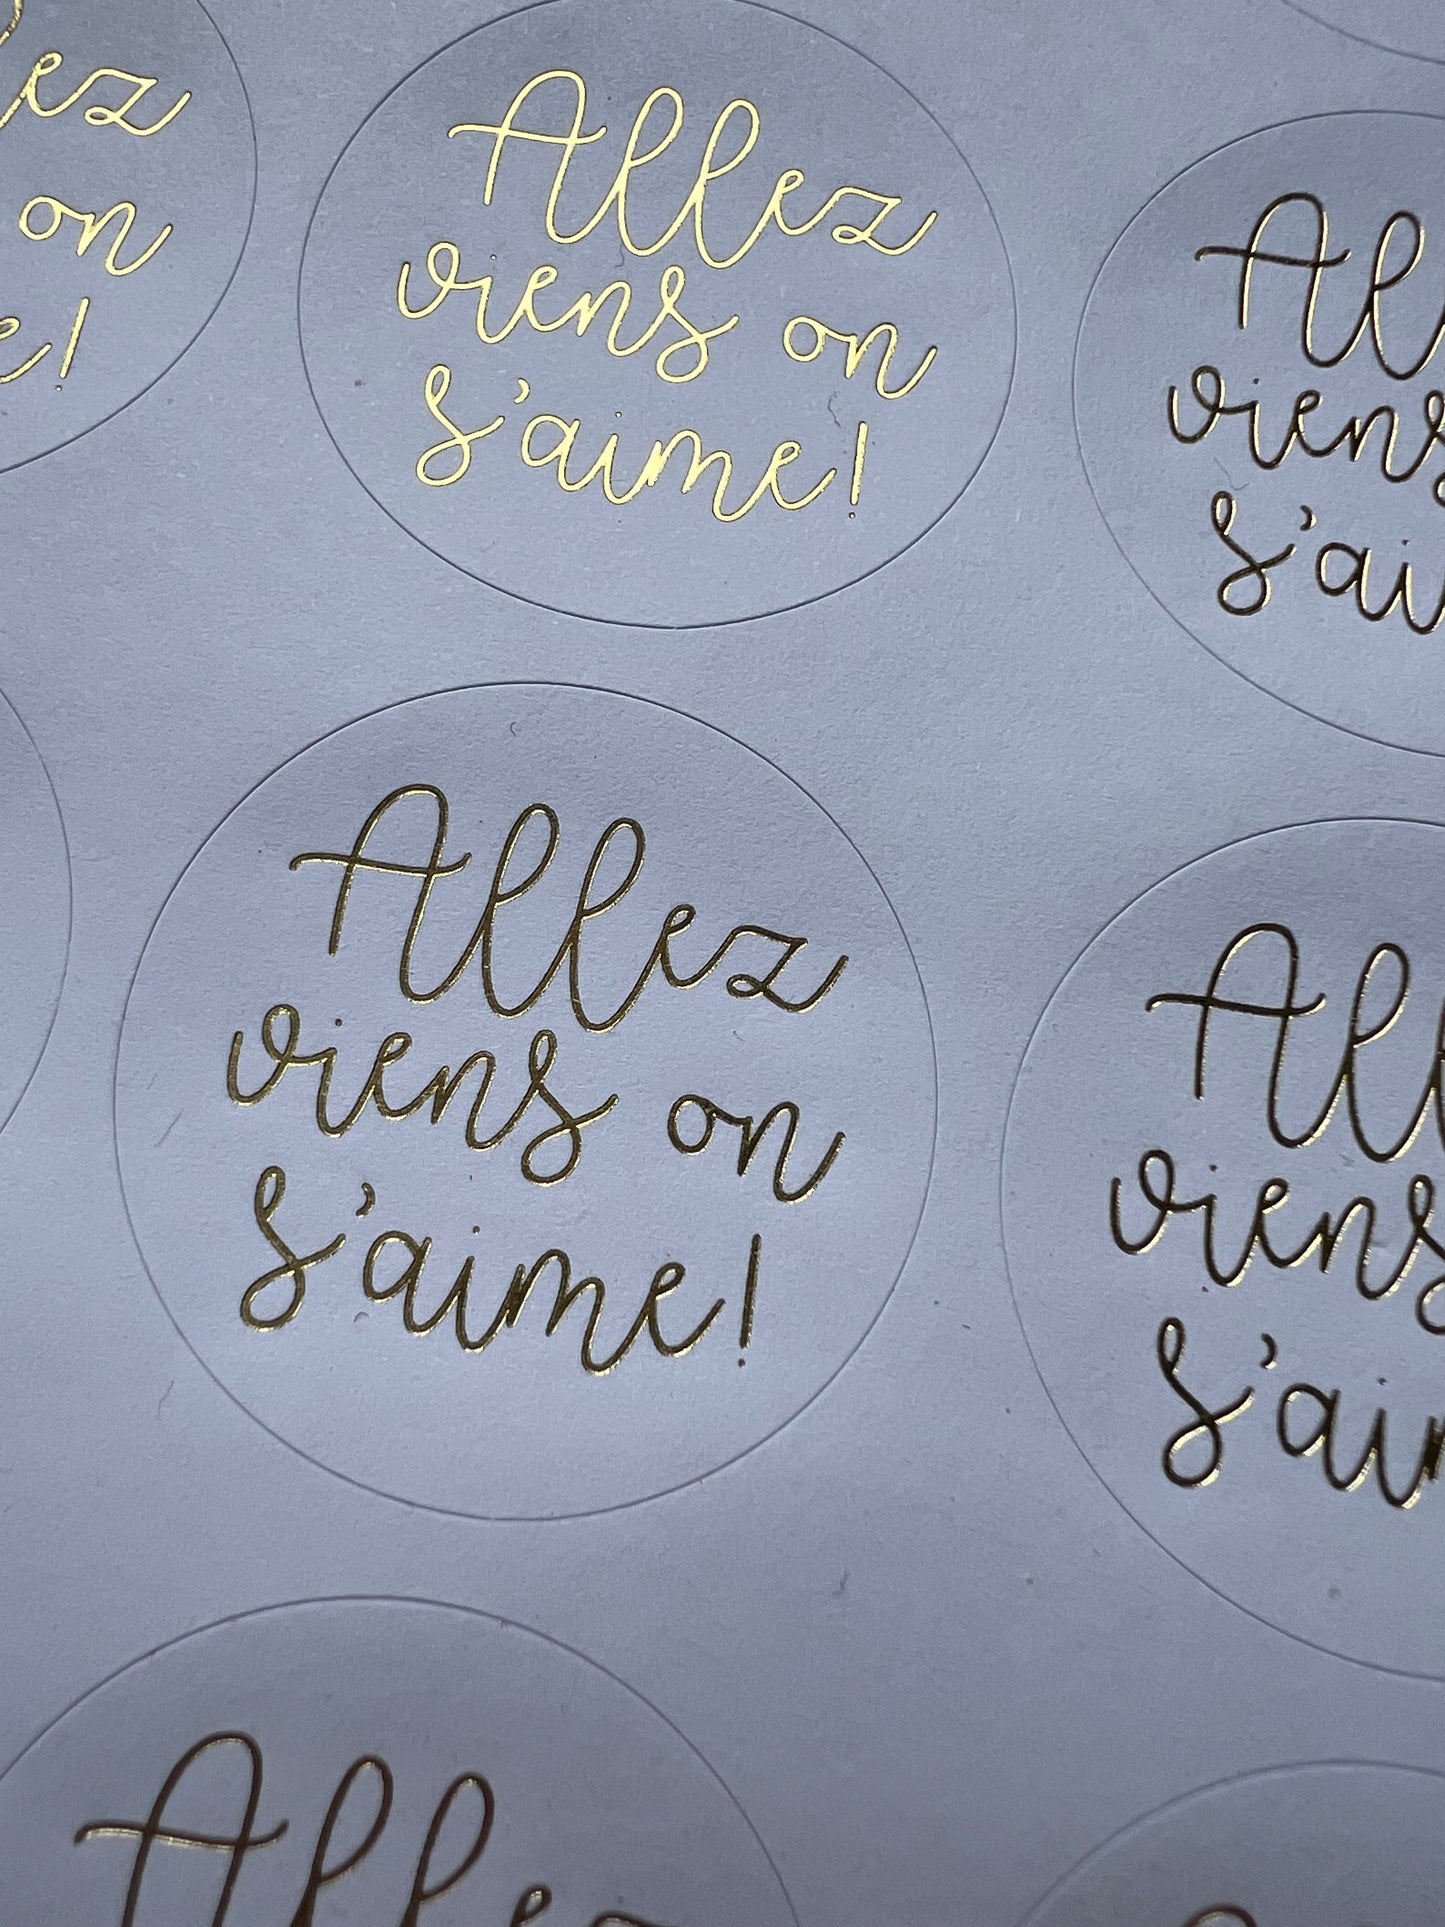 ez
on
e!
Allez
viens on
s'aime!
All
viens
s'ai
Allez
viens on
s'aime!
All
viens
s'ai
Alle